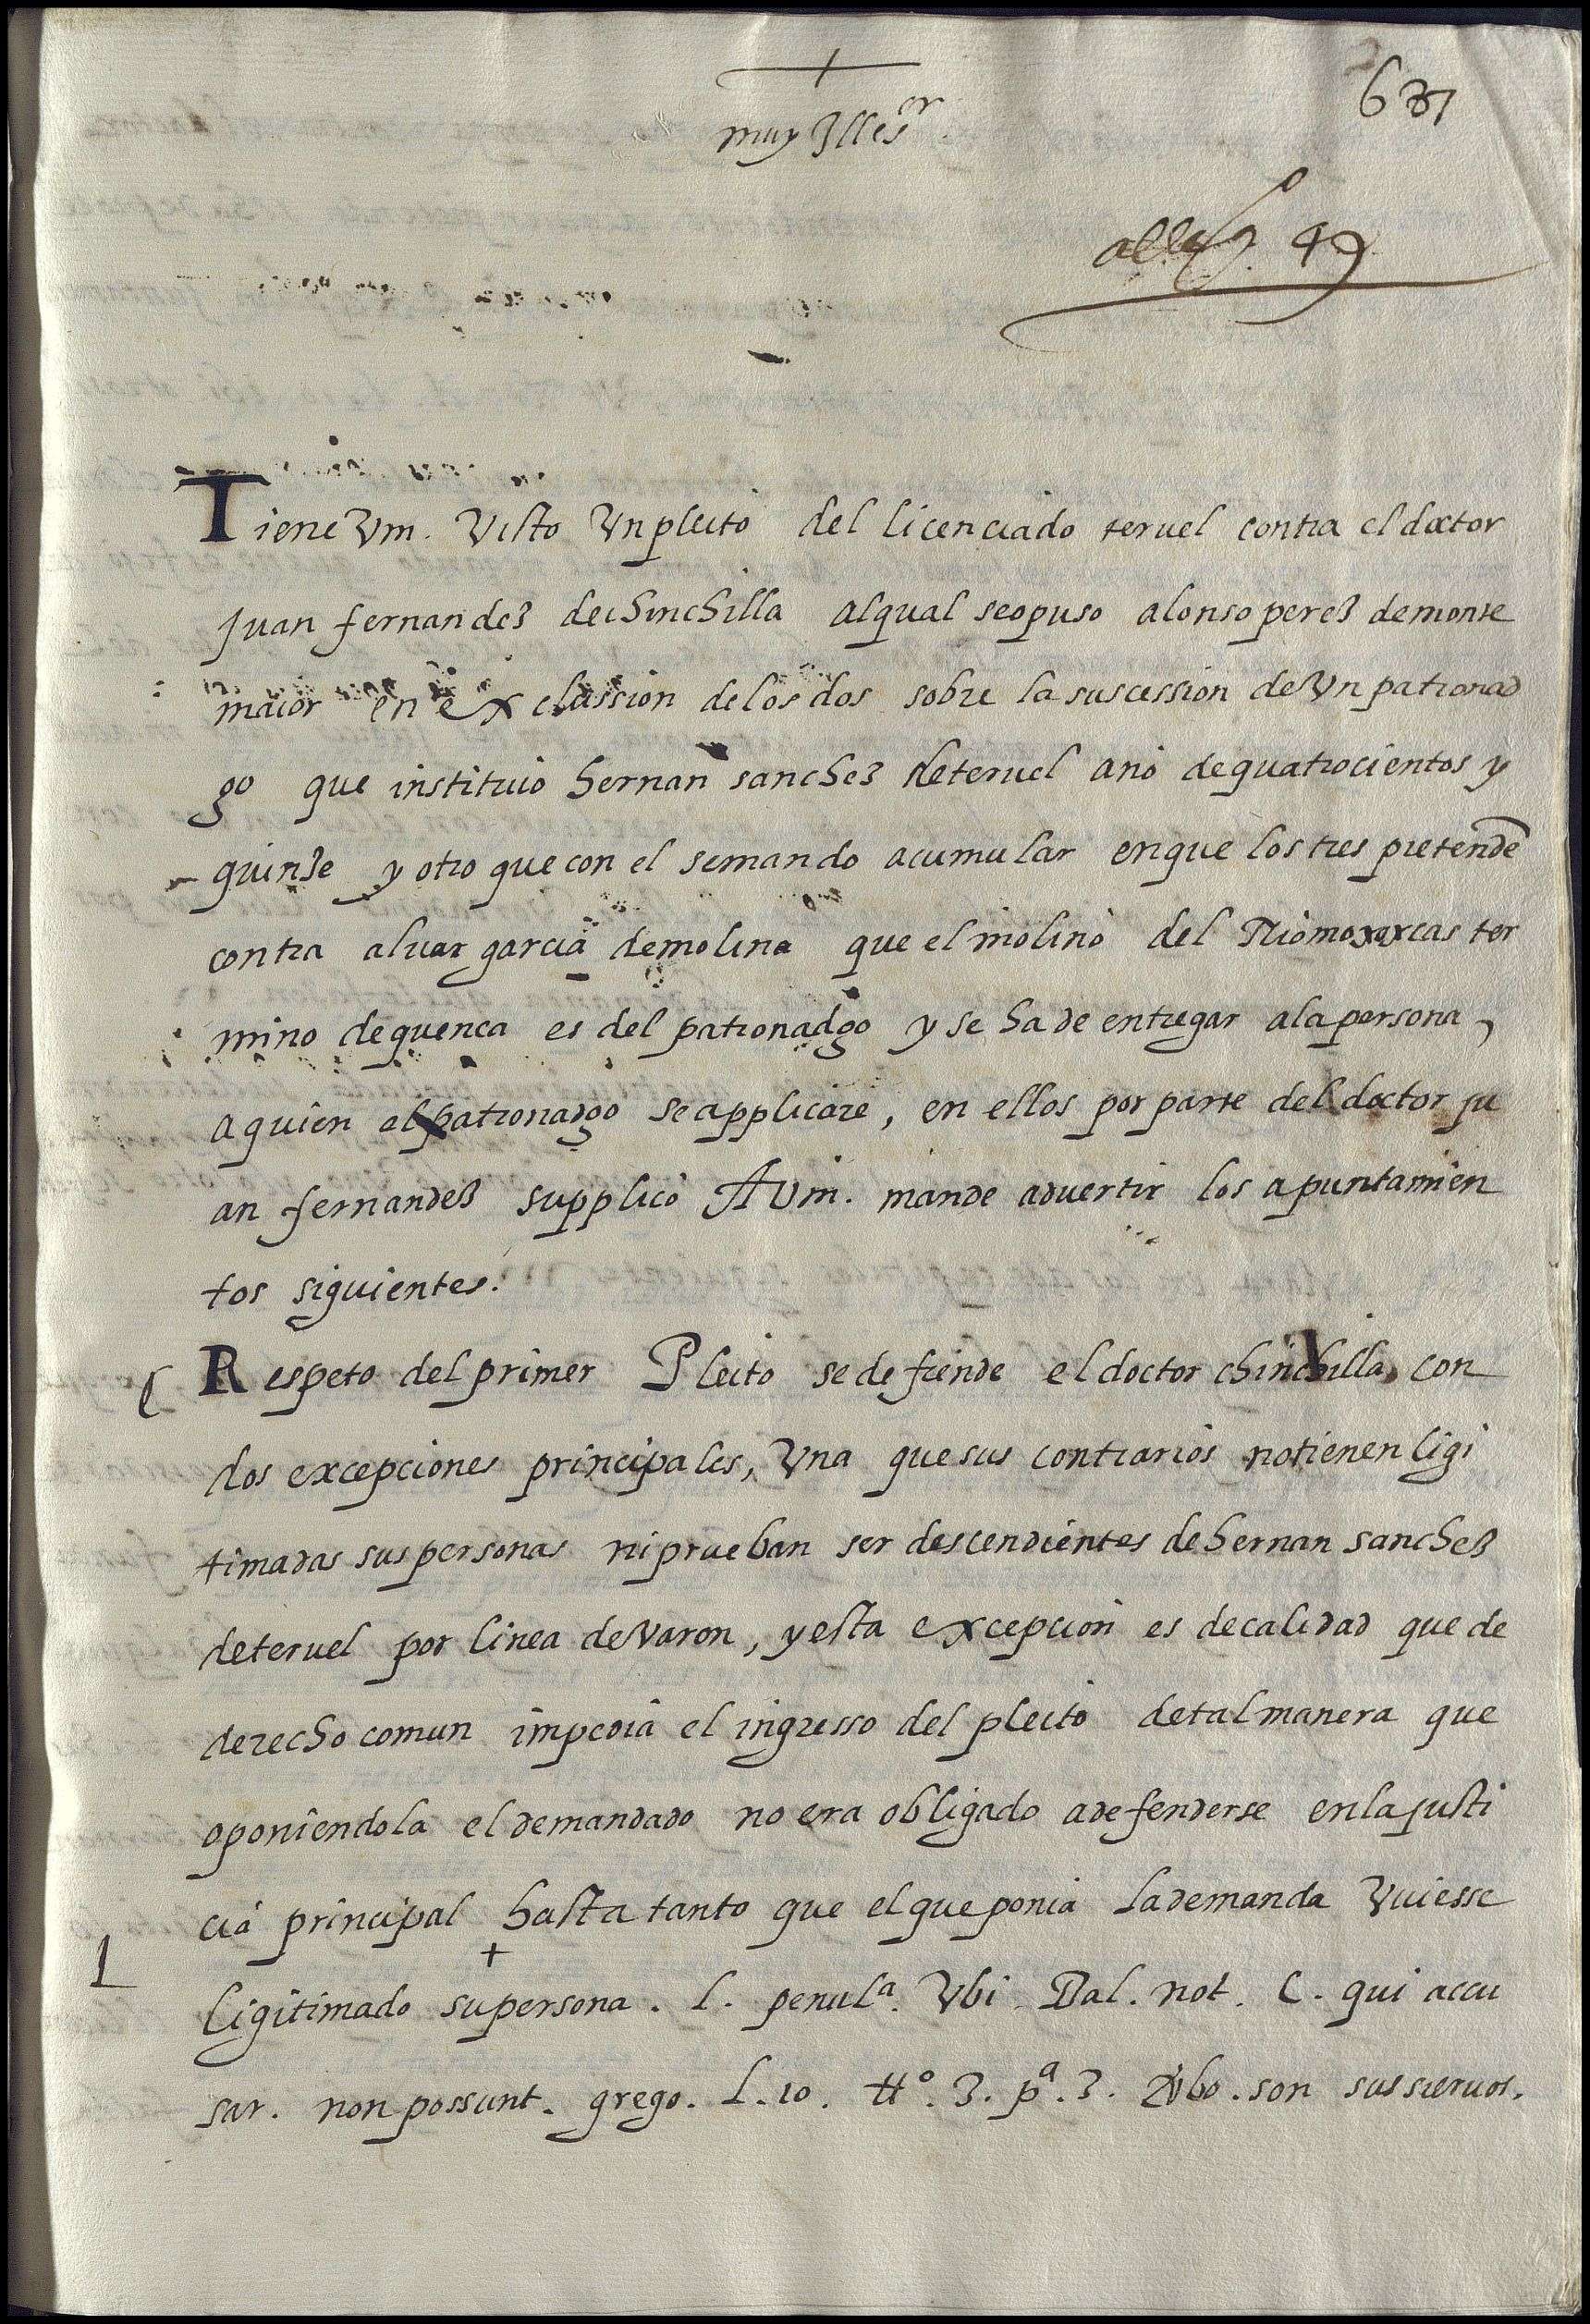 muy Illes.or
637
49
Tiene Vm. Visto Vn pleito del licenciado teruel contra el doctor
Juan fernandes de chinchilla alqual seopuso alonso peres demonte
maior en exclussion delos dos sobre la suscession deVn patronad
go que instituio hernan sanches deteruel ano dequatrocientos y
quinse y otro que con el semando acumular enque los tres pretendē
contra aluar garcia demolina que el molino del Rio moxarcas ter
mino dequenca es del patronadgo y se ha de entregar ala persona,
a quien el patronadgo se applicare, en ellos por parte del doctor ju
an fernandes supplico AVm. mande aduertir los apuntamien
tos siguientes.
Respeto del primer Pleito se defiende el doctor chinchilla, con
dos excepciones principales, Vna que sus contrarios notienen ligi
timadas sus personas ni prueban ser descendientes de hernan sanches
deteruel por linea devaron, y esta excepcion es decalidad que de
derecho comun impedia el ingresso del pleito detalmanera que
oponiendola el demandado no era obligado adefenderse enla justi
cia principal hasta tanto que el queponia la demanda Vuiesse
1 ligitimado su persona. l. penul.a Vbi. Bal. not. C. qui accu
sar. non possunt. grego. l. 10. tt.o 3. p.a 3. Vbo. son sus sieruos.